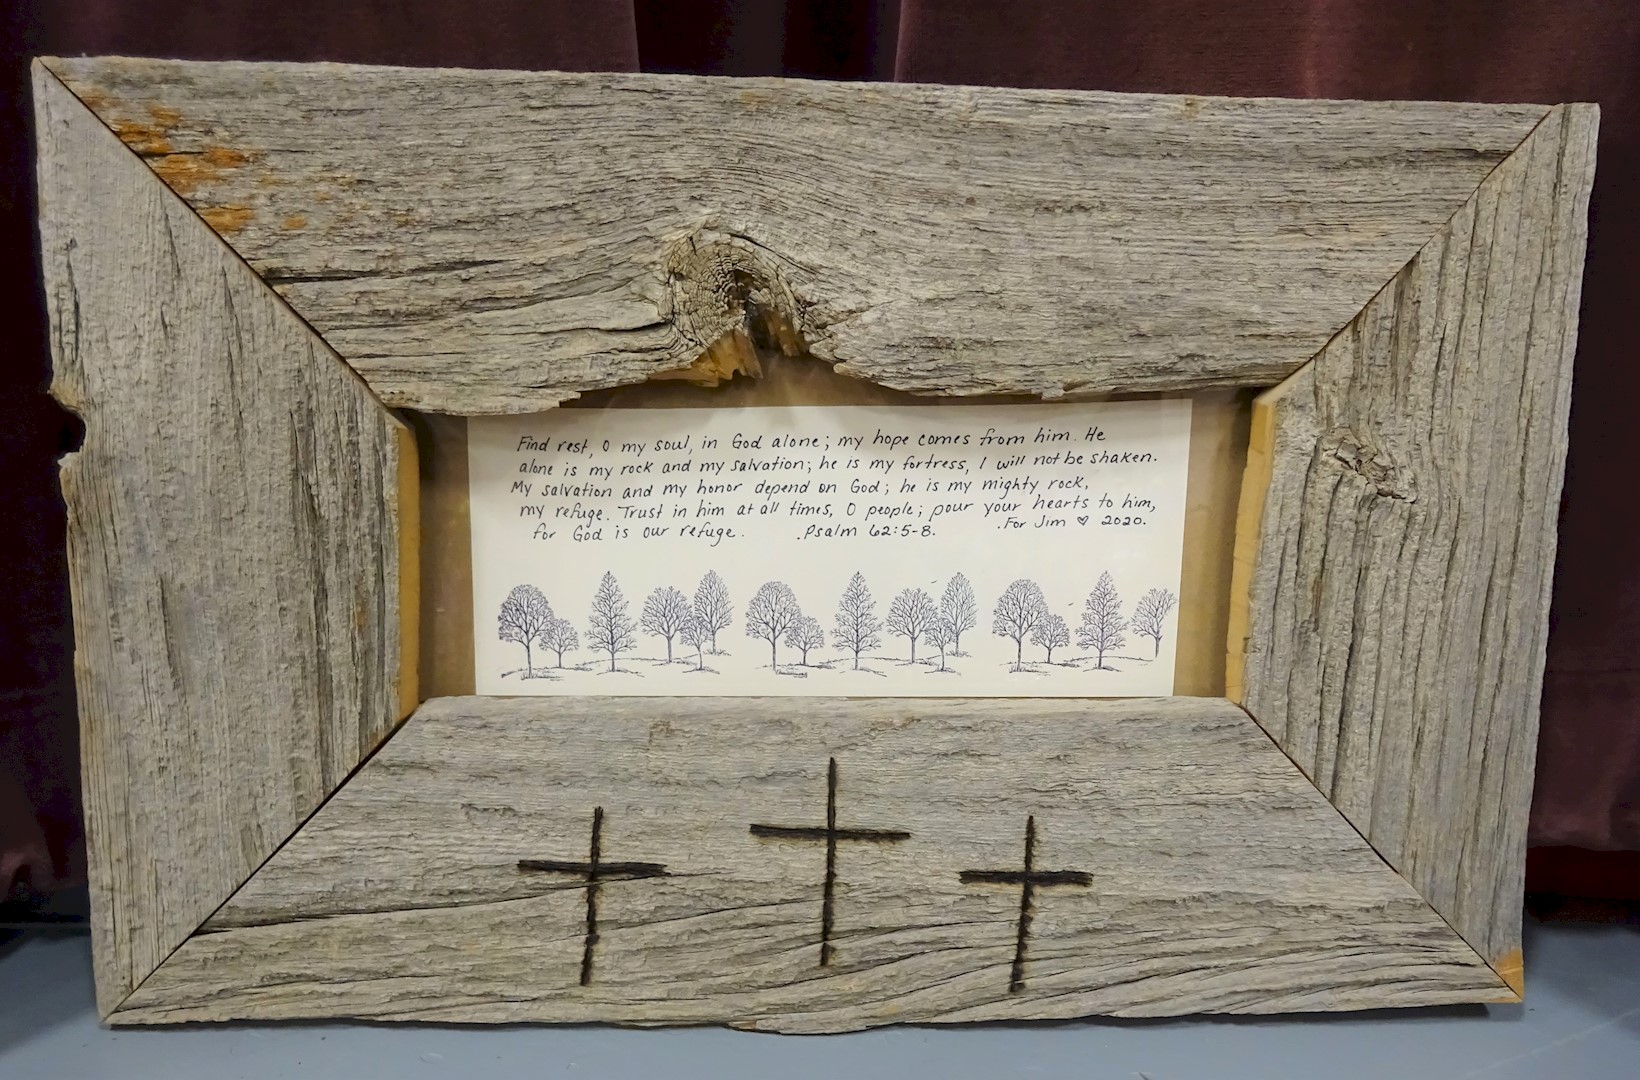 Find rest, O my soul, in God alone; my hope comes from him. He
alone is my rock and my salvation; he is my fortress, I will not be shaken.
My salvation and my honor depend on God; he is my mighty rock,
my refuge. Trust in him at all times, O people; pour your hearts to him,
for God is our refuge. .Psalm 62:5-8. .For Jim ♡ 2020.